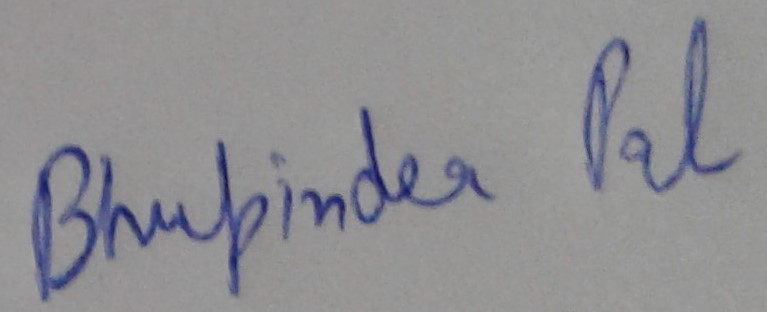 Bhupinder Pal